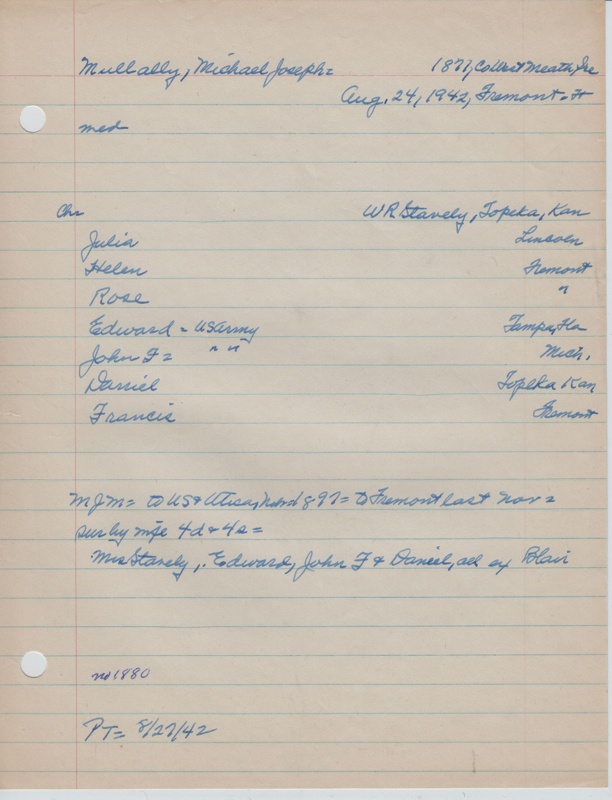 Mullally, Michael Joseph= 1877, Co West Meath, Ire
Aug. 24, 1942, Fremont.
med
Chr W R Stavely, Topeka, Kan
Julia Lincoln
Helen Fremont
Rose "
Edward = US Army Tampa, Fla
John F= " " Mich.
Daniel Topeka Kan
Francis Fremont
MJM= to US & Utica, 1897= to Fremont last Nov=
sur by wife 4d & 4s=
Mrs Stavely, Edward, John F & Daniel, all ex Blair
no 1880
PT= 8/27/42